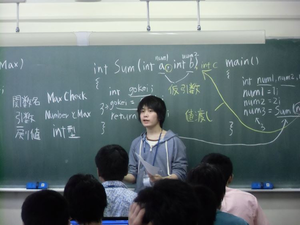 Max)
関数名 Max Check
引数 Number, Max
戻り値 int型
int Sum(int a, int b)
num1 num2
int c
{
int gokei;
gokei =
return
}
仮引数
値渡し
main()
{
int num1, num2,
num1 = 1;
num2 = 2;
num3 = Sum(n
}